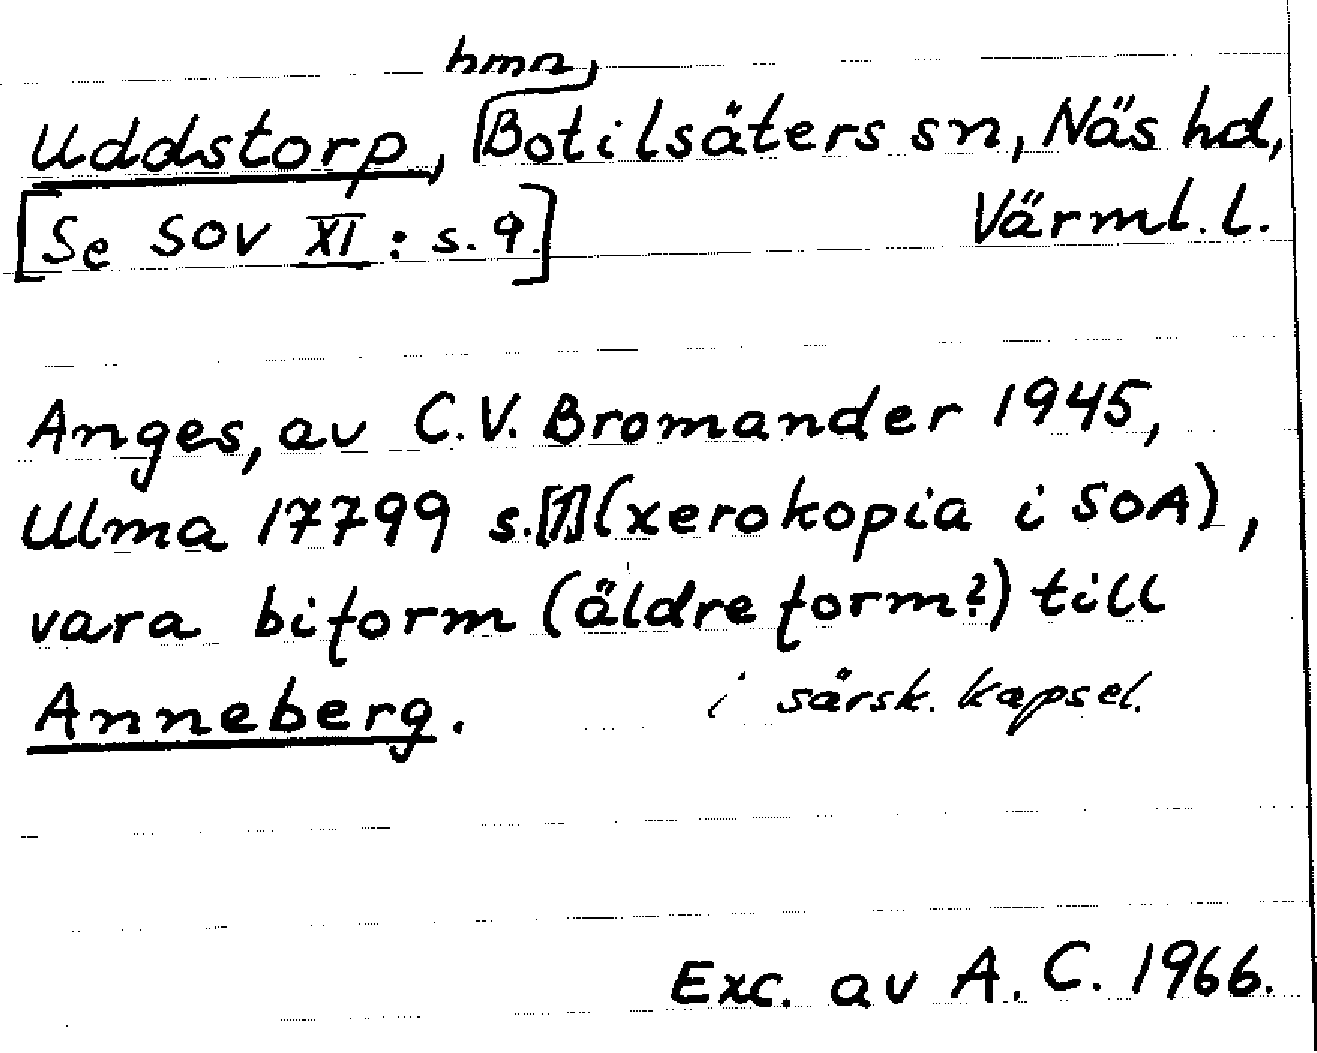 hmn,
Uddstorp, Botilsäters sn, Näs hd,
[Se SOV XI: s. 9] Värml. l.
Anges, av C.V. Bromander 1945,
Ulma 17799 s.[1] (xerokopia i SOA),
vara biform (äldre form?) till
Anneberg. i särsk. kapsel.
Exc. av A. C. 1966.